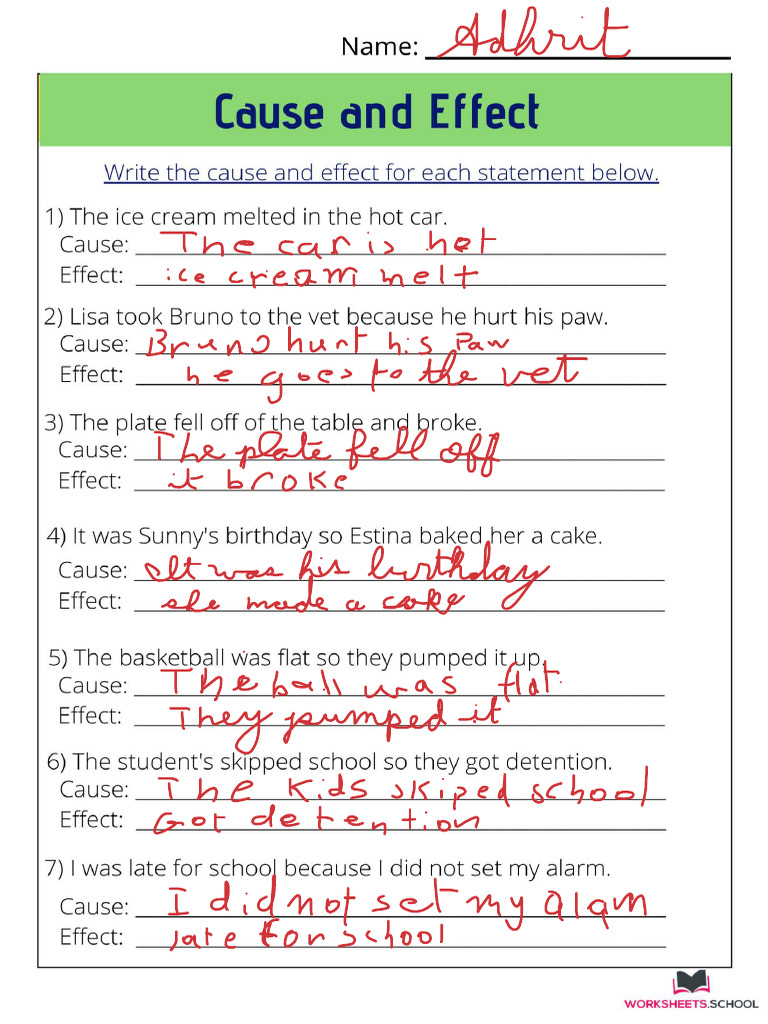 Name: Adhrit
Cause and Effect
Write the cause and effect for each statement below.
1) The ice cream melted in the hot car.
Cause: The car is hot
Effect: ice cream melt
2) Lisa took Bruno to the vet because he hurt his paw.
Cause: Bruno hurt his Paw
Effect: he goes to the vet
3) The plate fell off of the table and broke.
Cause: The plate fell off
Effect: it broke
4) It was Sunny's birthday so Estina baked her a cake.
Cause: It was his burthday
Effect: she made a cake
5) The basketball was flat so they pumped it up.
Cause: The ball was flat.
Effect: They pumped it
6) The student's skipped school so they got detention.
Cause: The kids skiped school
Effect: Got detention
7) I was late for school because I did not set my alarm.
Cause: I did not set my alam
Effect: late for school
WORKSHEETS.SCHOOL